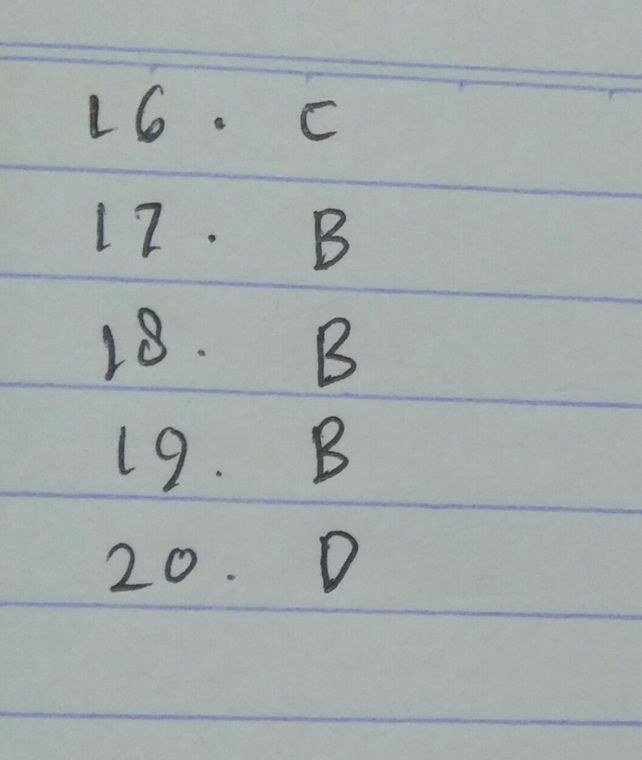 16. C
17. B
18. B
19. B
20. D